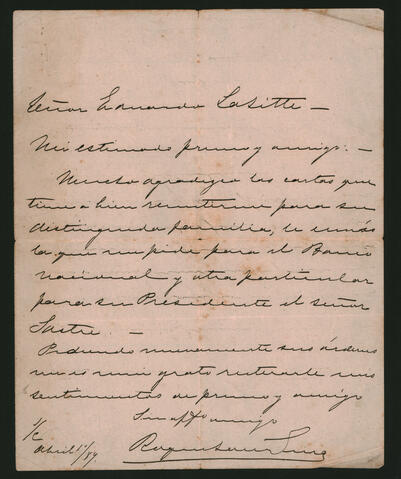 Señor Eduardo Lasitte —
Mi estimado primo y amigo: —
Mucho agradezco las cartas que
tiene á bien remitirme para su
distinguida familia,
la que me pide para el Banco
nacional y otra particular
para su Presidente el señor
Sastre. —
Pidiendo nuevamente sus órdenes
me es muy grato reiterarle mis
sentimientos de primo y amigo
Su aff amigo
S/C
Abril 15/89